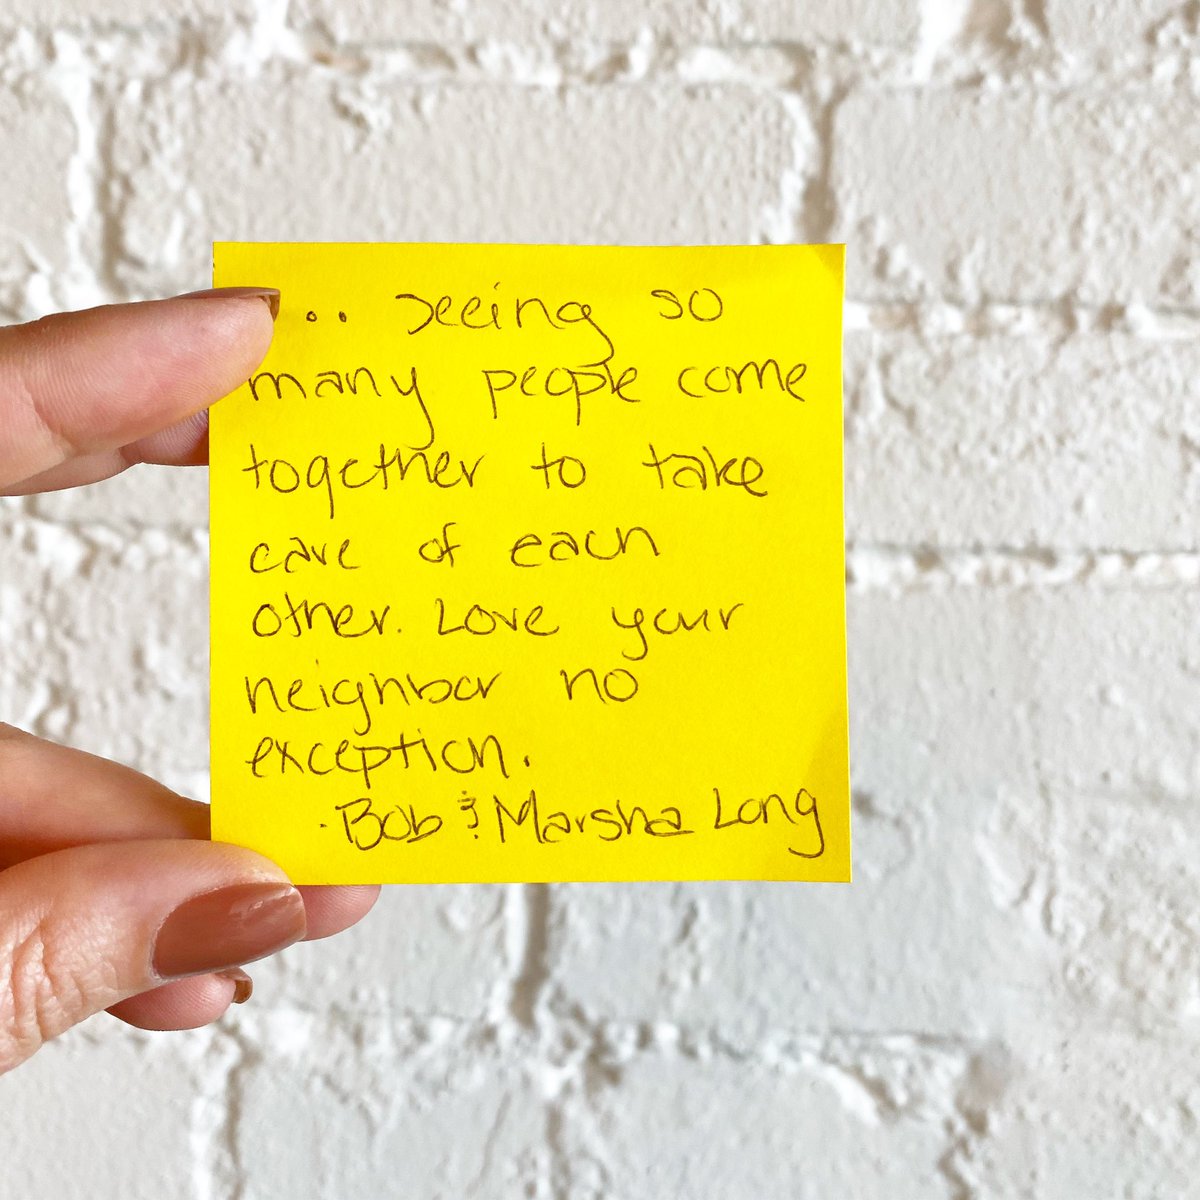 ... seeing so
many people come
together to take
care of each
other. Love your
neighbor no
exception.
- Bob & Marsha Long